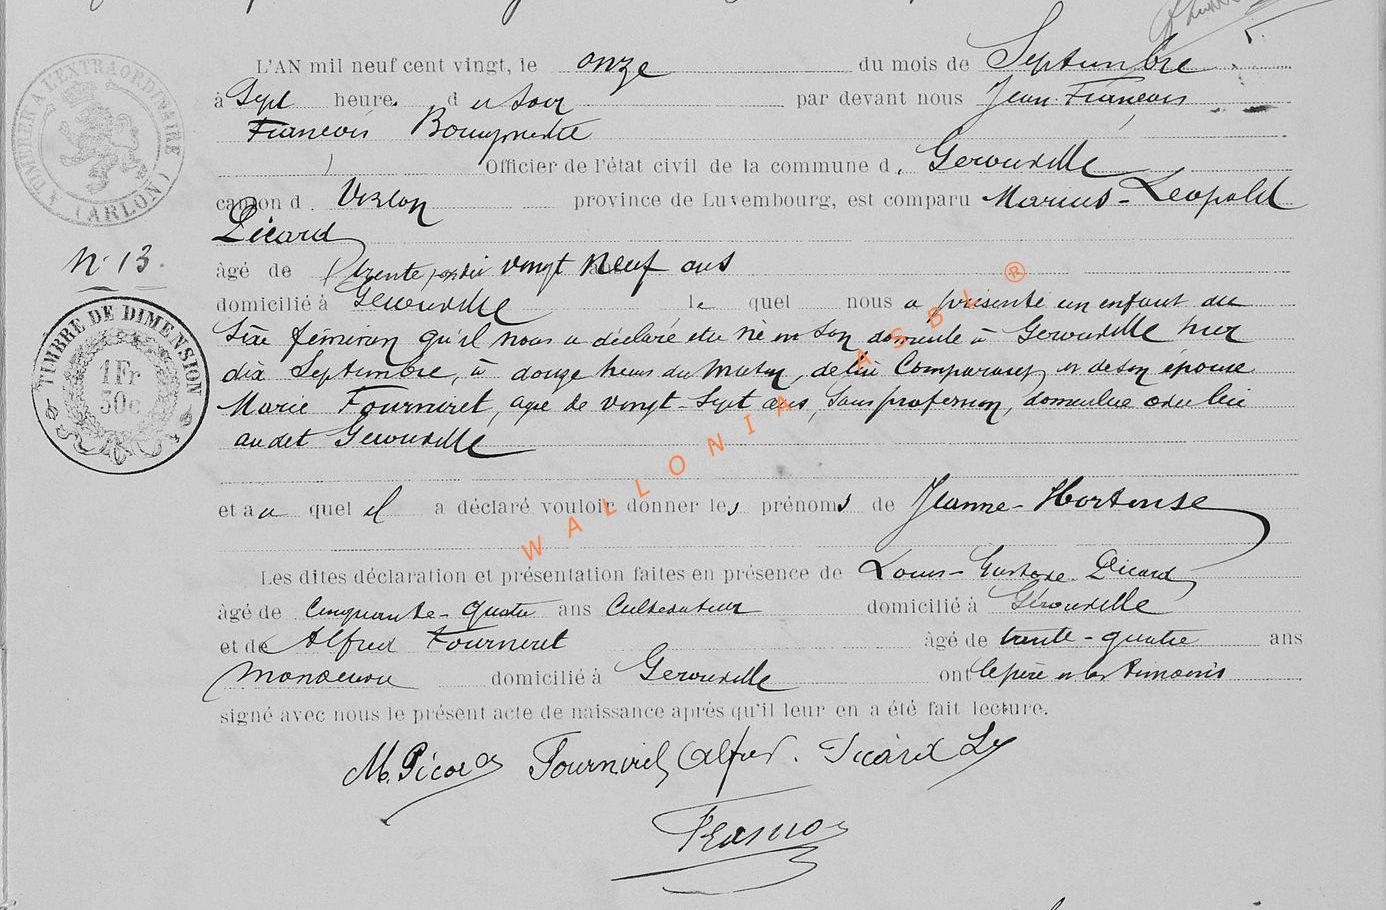 L'AN mil neuf cent vingt, le onze du mois de Septembre
à Sept heures du soir par devant nous Jean-François
François
Officier de l'état civil de la commune d. Gérouville
canton d. Virton province de Luxembourg, est comparu Marius-Léopold
Picard
N° 13.
âgé de vingt neuf ans
domicilié à Gérouville le quel nous a présenté un enfant du
sexe féminin qu'il nous a déclaré être né en son domicile à Gérouville hier
dix Septembre, à douze heures du matin, de lui Comparant et de son épouse
Marie Fourniret, agée de vingt-sept ans, sans profession, domiciliée avec lui
audit Gérouville
et au quel il a déclaré vouloir donner les prénoms de Jeanne-Hortense
Les dites déclaration et présentation faites en présence de Louis-Gustave Picard
âgé de cinquante-quatre ans Cultivateur domicilié à Gérouville
et de Alfred Fourniret âgé de trente-quatre ans
domicilié à Gérouville ont le père et les témoins
signé avec nous le présent acte de naissance après qu'il leur en a été fait lecture.
M. Picard Fourniret Alfred. Picard Ls
A TIMBRER A L'EXTRAORDINAIRE (ARLON)
TIMBRE DE DIMENSION
1Fr
50c
WALLONIA ASBL ®